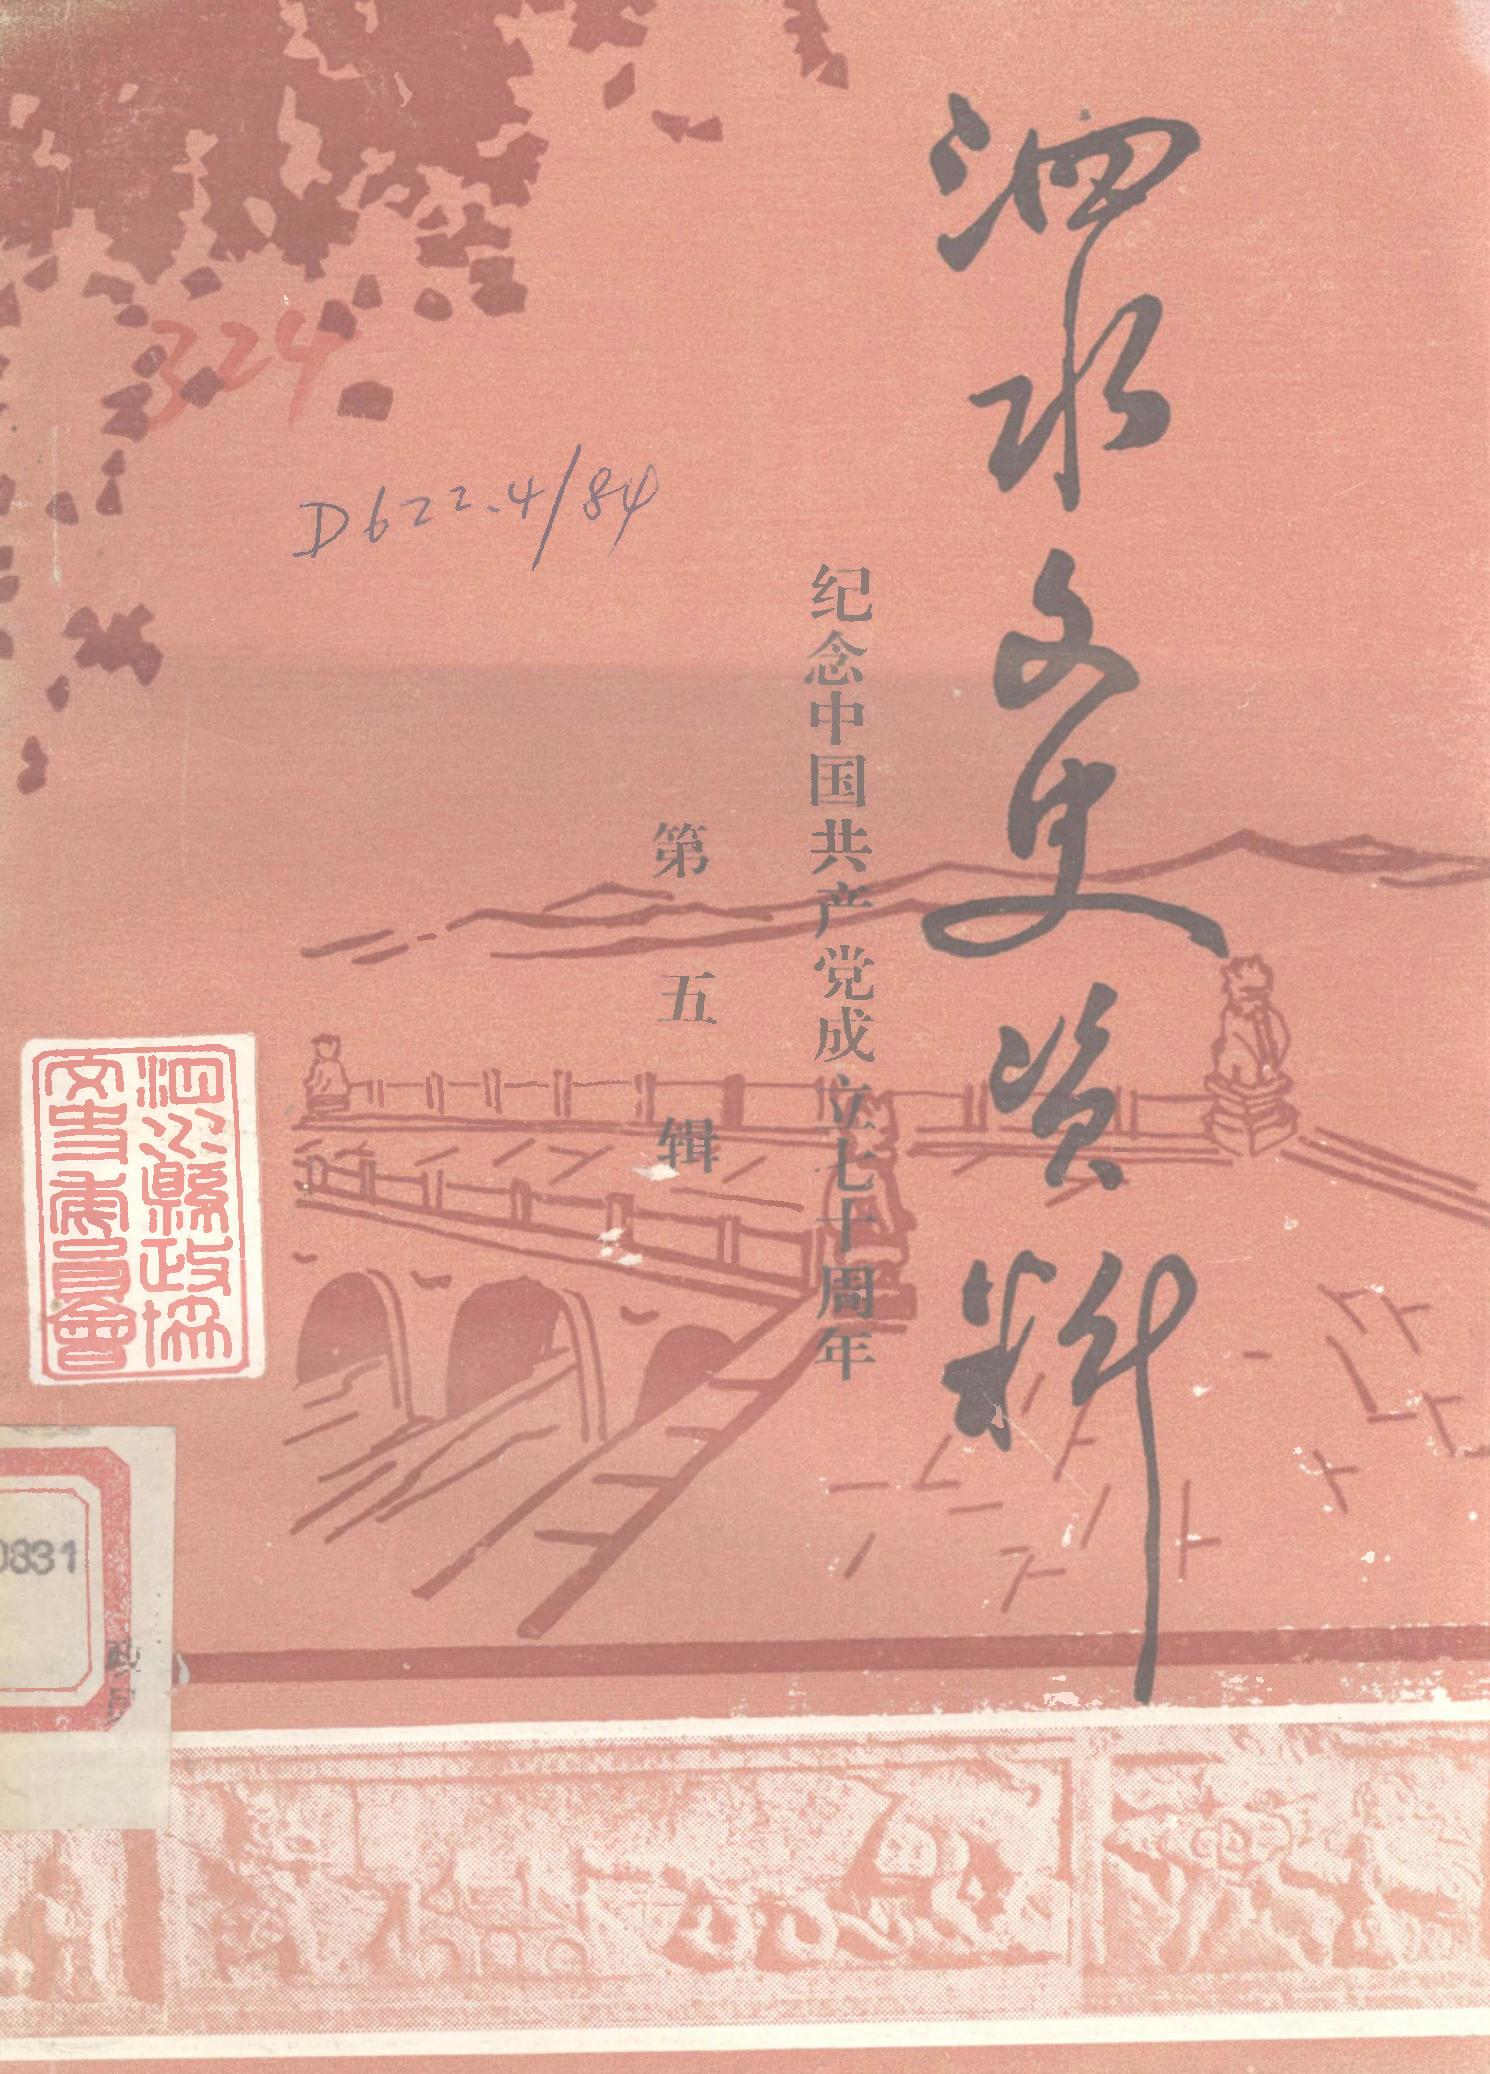 泗水文史资料
纪念中国共产党成立七十周年
第五辑
324
D622.4/84
泗水縣政協
文史委員會
0831